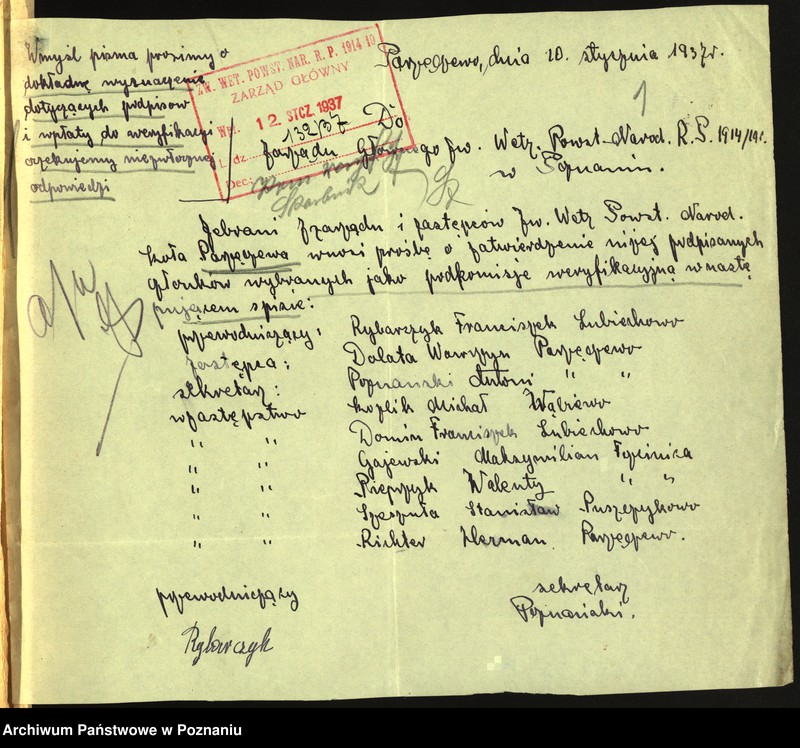 Wmyśl pisma prosimy o
dokładne wyznaczenie
dotyczących podpisów
i wpłaty do weryfikacji
oczekujemy niezwłocznej
odpowiedzi
ZW. WET. POWST. NAR. R. P. 1914/19
ZARZĄD GŁÓWNY
Wpł. 12 STCZ. 1937
L. dz. 132/37
Dec.
Skarbnik
Parzęczewo, dnia 10. stycznia 1937r.
1
Do
Zarządu Głównego Zw. Wetz. Powst. Narod. R. P. 1914/19r.
w Poznaniu.
Zebrani Zzarządu i zastępców Zw. Wetz Powst. Narod.
koła Parzęczewa wnosi prośbę o zatwierdzenie niżej podpisanych
członków wybranych jako podkomisje weryfikacyjną wnastę
pującem spisie:
przewodniczący: Rybarczyk Franciszek Lubiechowo
zastępca: Dolata Wawrzyn Parzęczewo
sekretarz: Poznański Antoni " "
wzastępstwo Koplik Michał Wąbiewo
" " Domin Franciszek Lubiechowo
" " Gajewski Maksymilian Łęcinica
" " Pieprzyk Walenty " "
" " Szeszuła Stanisław Puszczykowo
" " Richter Herman Parzęczewo.
przewodniczący
Rybarczyk
sekretarz
Poznański.
Archiwum Państwowe w Poznaniu